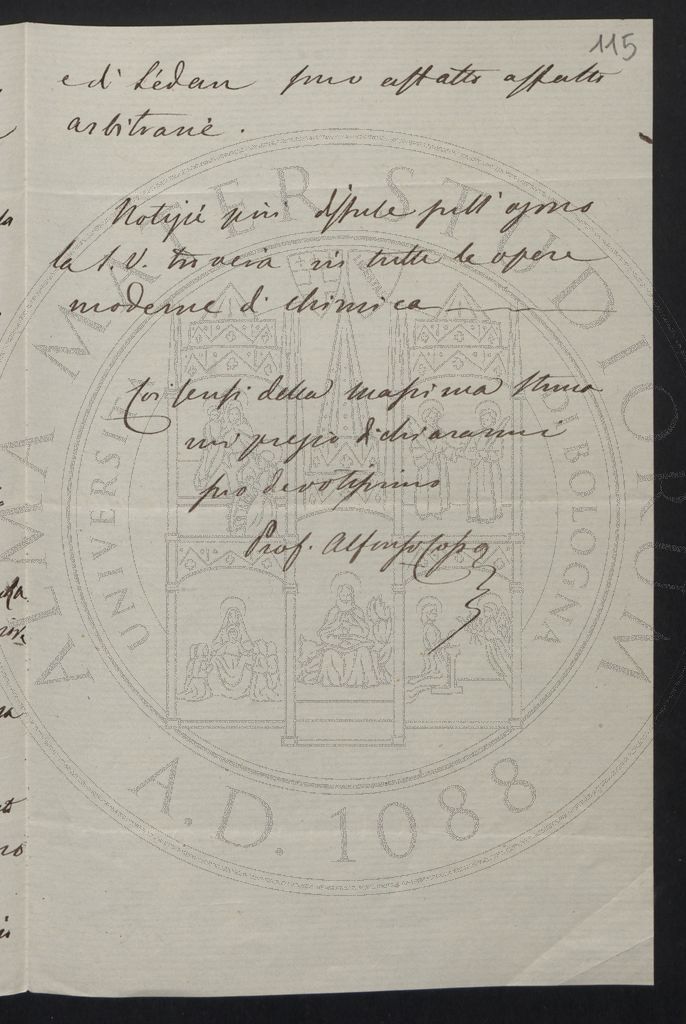 115
e di Sédan sono affatto affatto
arbitrarie.
Notizie più diffuse sull'ozono
la S. V. troverà in tutte le opere
moderne di chimica
Coi sensi della massima stima
mi pregio dichiararmi
suo devotissimo
Prof. Alfonso Cossa
ALMA MATER STUDIORUM
UNIVERSITÀ DI BOLOGNA
A.D. 1088